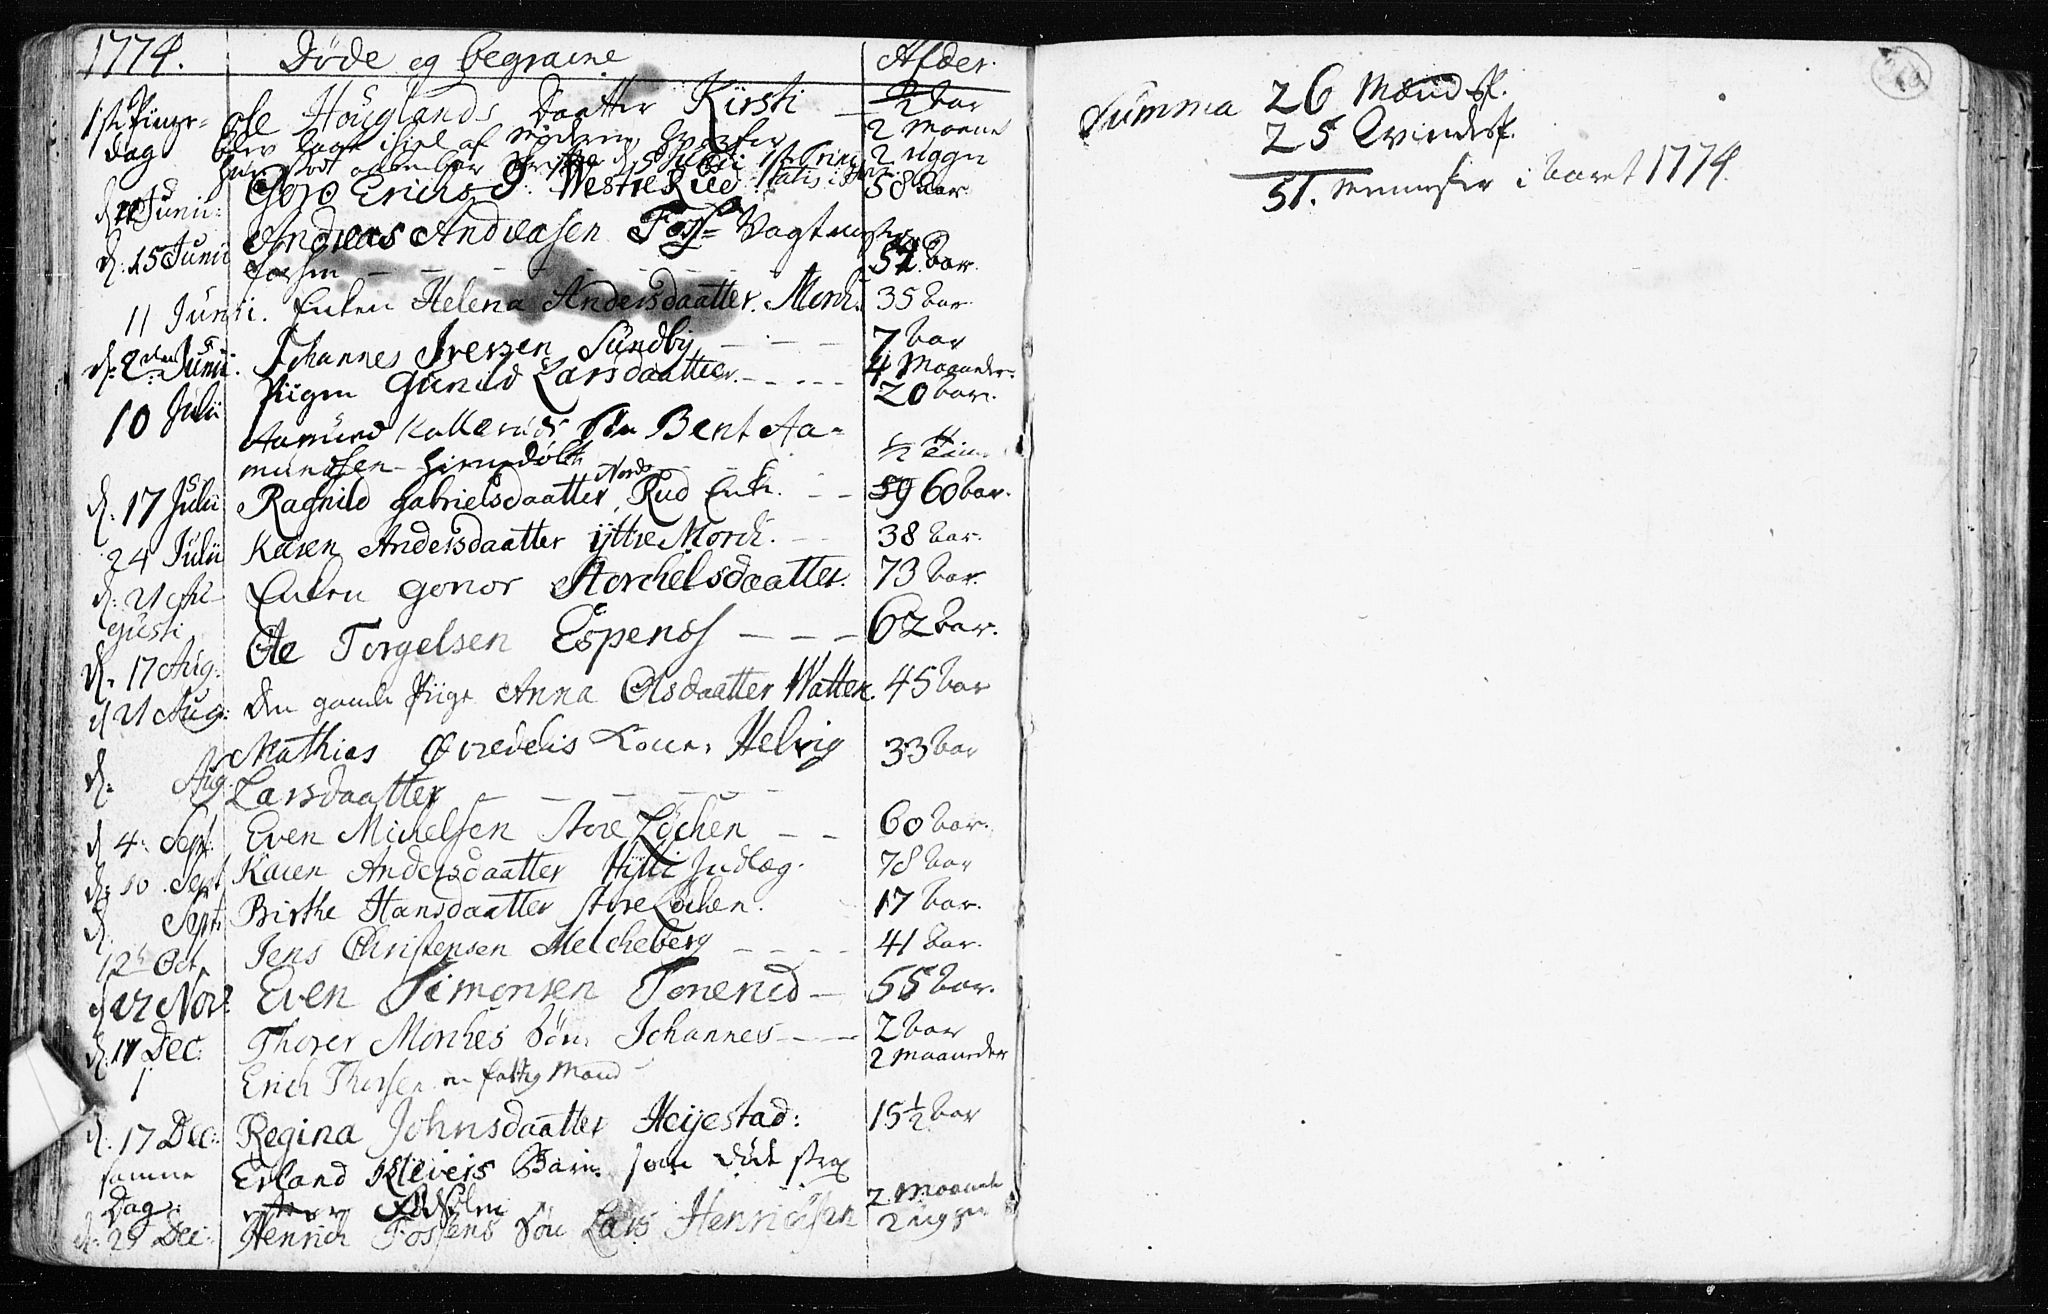 1774.
Døde og begravne
Alder.
1ste Pinze=
dag
Ole Høuglands Daatter Kirsti
½ aar
blev lagt ihiel af Moderen
2 Maane
2 uger
d. Junii:
Goro Erichs D. Westre Rüd
58 aar
d: 15 Junii
Andreas Andreasen Foss= Vagtmester
Fossen – – – –
52 aar.
11 Junii. Enken Helena Andersdaatter. Morch.
35 aar
d: 2den Junii.
Johannes Iversen Sundby – – –
7 aar
4 Maaneder
10 Julii
Pigen Gunild Larsdaatter. – – – –
20 aar.
Aamund Kallerüds Søn Bent Aa=
mundsen hiemdøbt
½ Time
d. 17 Julii
Ragnild Gabrielsdaatter Nordre Rud Enke. – –
59 60 aar.
24 Julii
Karen Andersdaatter ÿttre Morch. – –
38 aar.
d: 21 Au-
gusti
Enken Gonor Storchelsdaatter.
73 aar.
d. 17 Aug:
Ole Torgelsen Espenes – – –
62 aar.
d 21 Aug:
Den gamle Pige Anna Olsdaatter Watten.
45 aar
d: Aug.
Mathias Øvredelis Kone Helvig
Larsdaatter – – – – –
33 aar
d 4: Sept:
Even Michelsen Store Løchen – –
60 aar.
d: 10. Sept
Karen Andersdaatter Hytte Indlæg.
78 aar
d. Sept:
Birthe Hansdaatter Store Løchen.
17 aar.
12te Oct.
Jens Christensen Melcheberg – – – –
41 aar.
d 27 Nov:
Even Simonsen Tonerud –
55 aar.
d: 17 Dec:
Thorer Morches Søn Johannes – – –
2 aar
2 Maaneder
1
Erich Thorsen en fattig Mand
d: 17 Dec:
Regina Johnsdaatter Heÿestad:
15½ aar
samme
Dag:
Erland Kleveis Barn som døde strax
efter
d: 29 Dec:
Henrich Fossens Søn Lars Henrichsen
2 Maane
2 uger
Summa 26 Mandsk.
25 Qvindesk.
51. Mennisker i Aaret 1774.